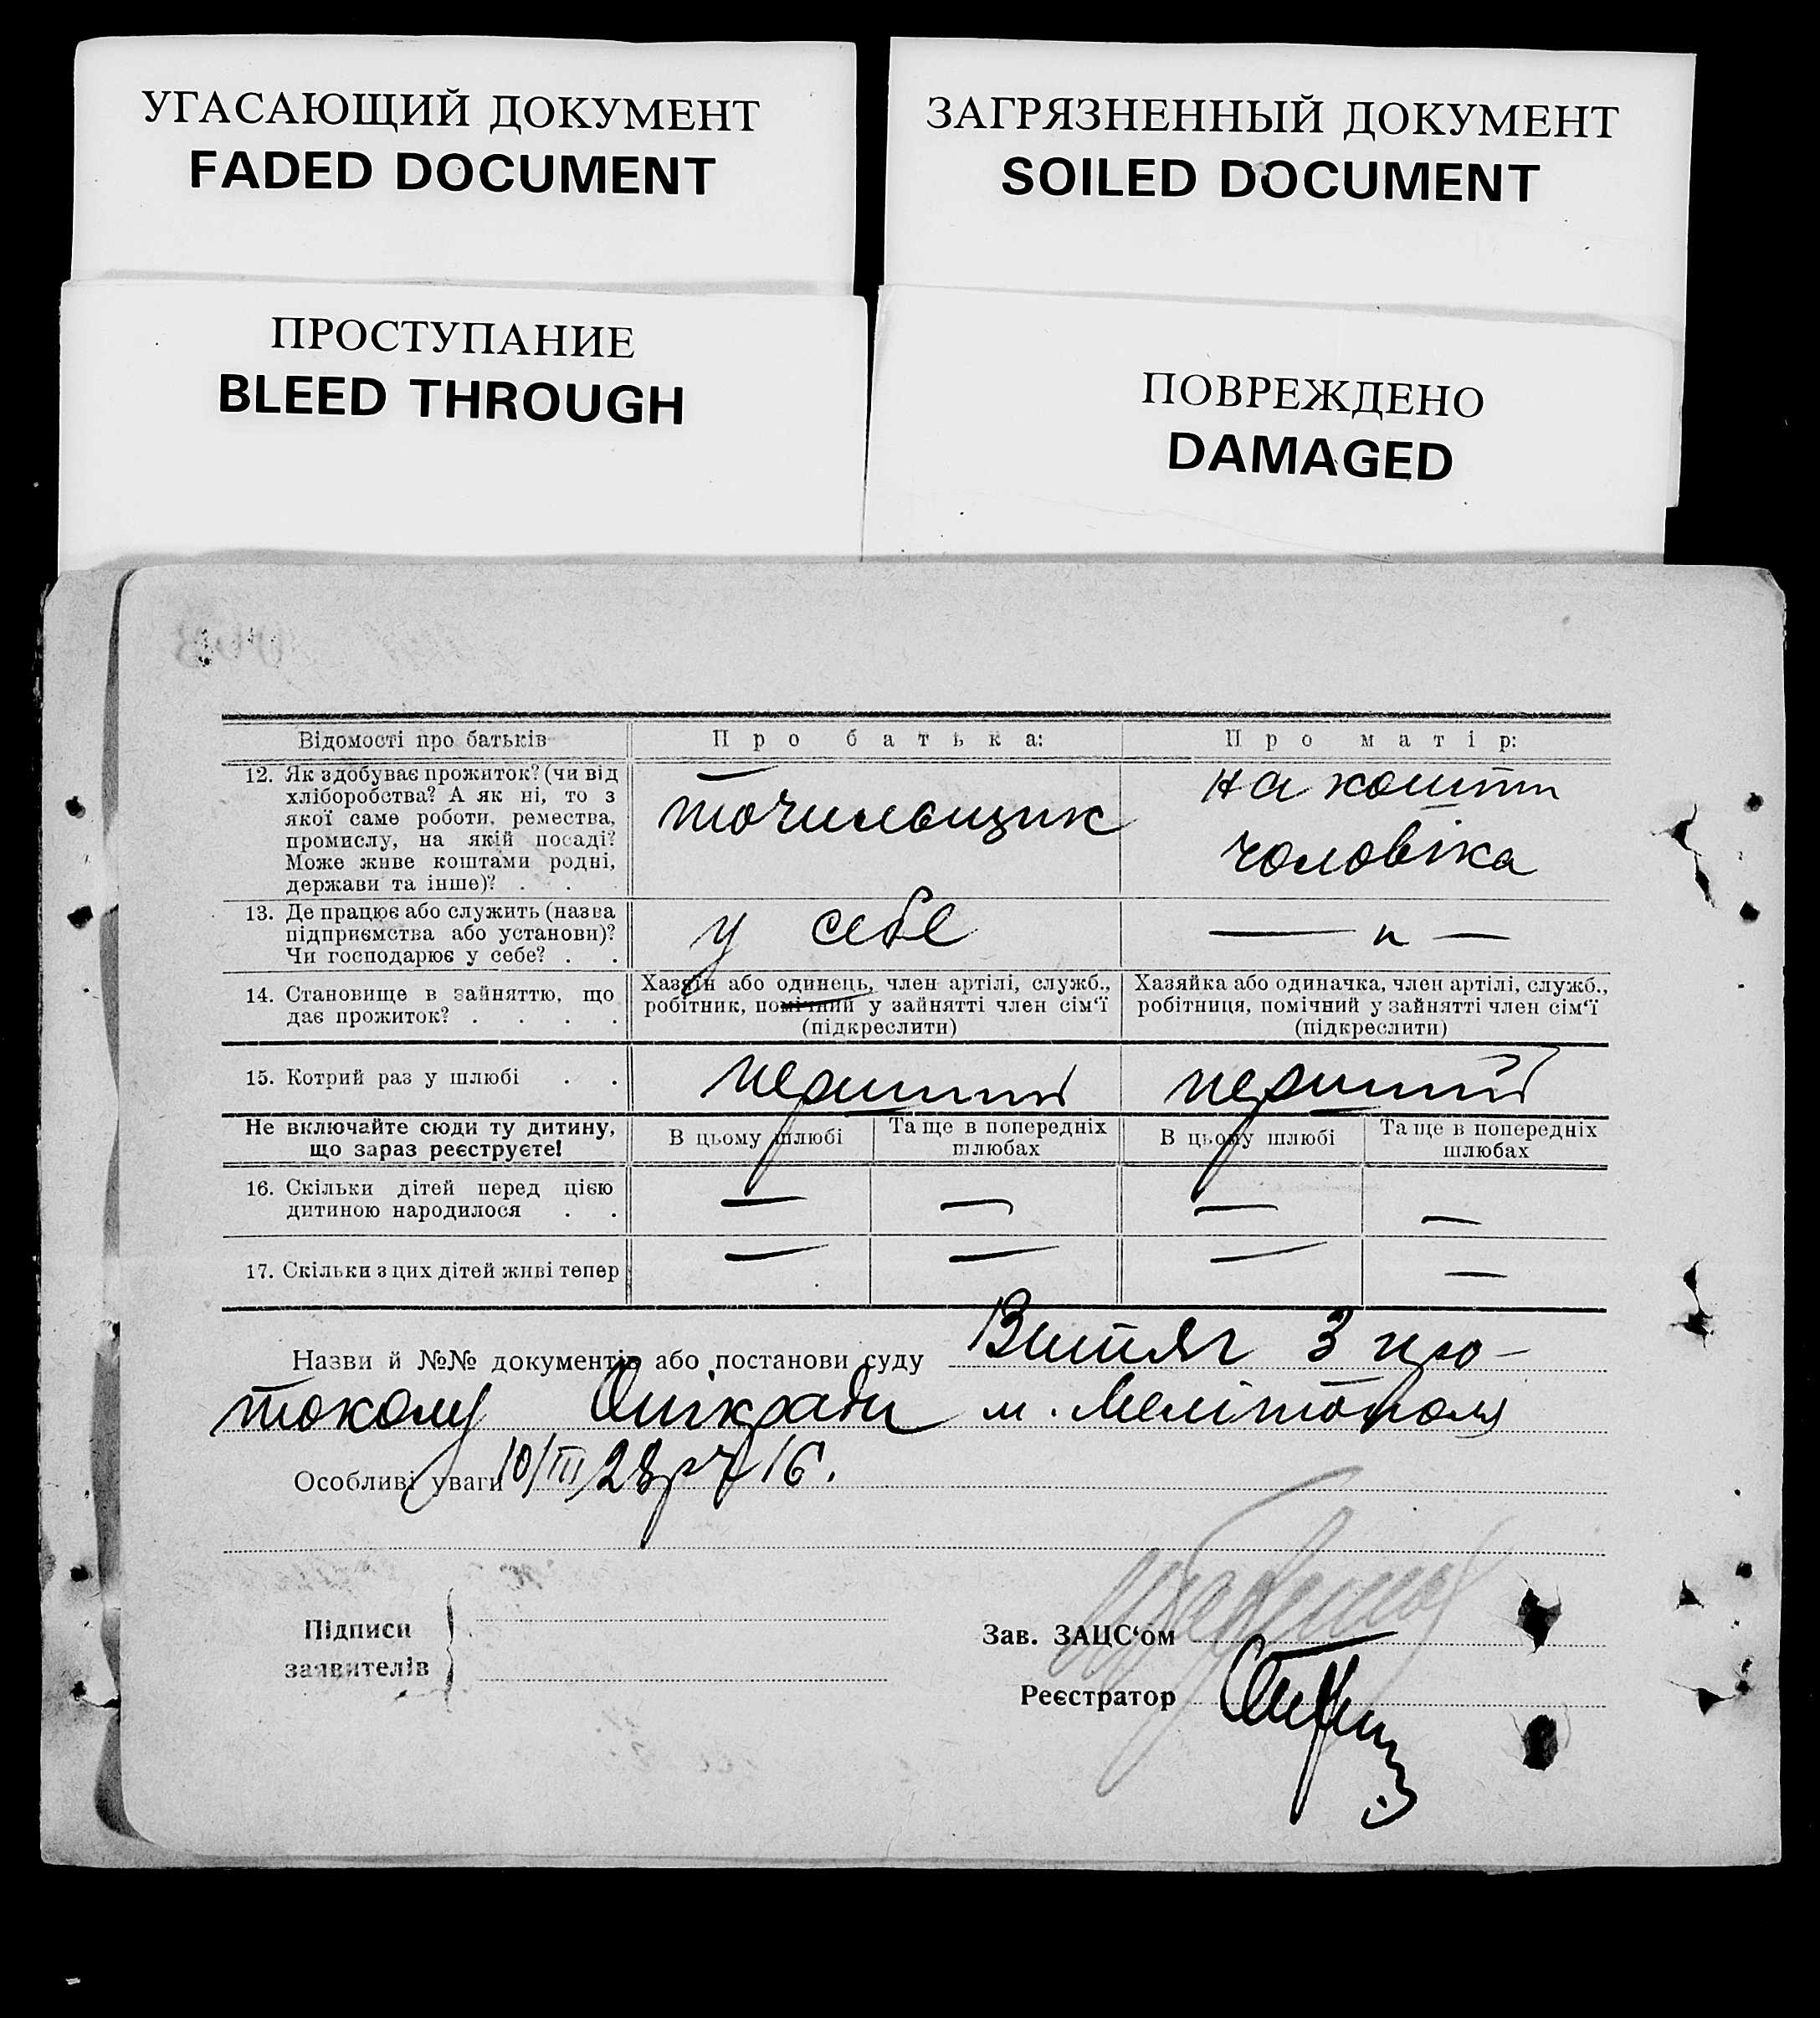 УГАСАЮЩИЙ ДОКУМЕНТ
FADED DOCUMENT
ЗАГРЯЗНЕННЫЙ ДОКУМЕНТ
SOILED DOCUMENT
ПРОСТУПАНИЕ
BLEED THROUGH
ПОВРЕЖДЕНО
DAMAGED
Відомості про батьків
Про батька:
Про матір:
12. Як здобуває прожиток? (чи від
хліборобства? А як ні, то з
якої саме роботи, ремества,
промислу, на якій посаді?
Може живе коштами родні,
держави та інше)? . .
точильщик
на кошти
чоловіка
13. Де працює або служить (назва
підприємства або установи)?
Чи господарює у себе? . .
у себе
— „ —
14. Становище в зайняттю, що
дає прожиток? . . . .
Хазяїн або одинець, член артілі, служб.,
робітник, помічний у зайнятті член сім‘ї
(підкреслити)
Хазяйка або одиначка, член артілі, служб.,
робітниця, помічний у зайнятті член сім‘ї
(підкреслити)
15. Котрий раз у шлюбі . .
перший
перший
Не включайте сюди ту дитину,
що зараз реєструєте!
В цьому шлюбі
Та ще в попередніх
шлюбах
В цьому шлюбі
Та ще в попередніх
шлюбах
16. Скільки дітей перед цією
дитиною народилося . .
— — — —
17. Скільки з цих дітей живі тепер
— — — —
Назви й №№ документів або постанови суду Витяг з про-
токолу Опікради м. Мелітополя
Особливі уваги 10/III 28р ч 16.
Підписи
заявителів
Зав. ЗАЦС‘ом
Реєстратор